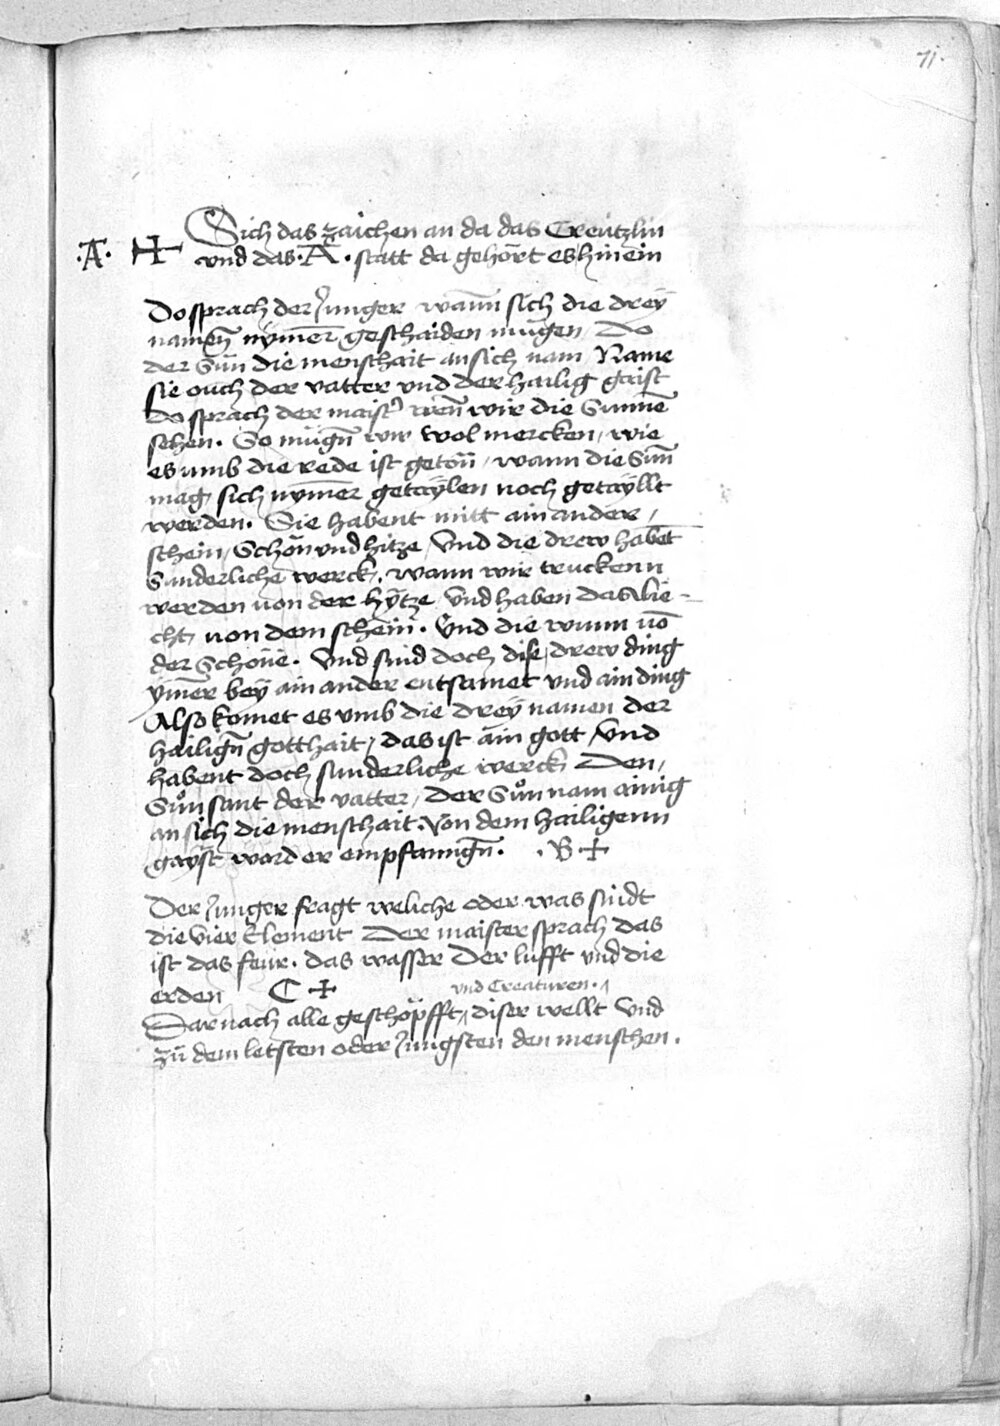 71.
Sich das zaichen an da das Creützlin
.A. + vnd das .A. statt da gehört es hinein
Do sprach der Junger wann̄ sich die dreÿ
namen̄ nÿmer̄ geschaiden mügen / Do
der Sun̄ die menschait an sich nam Name
sie ouch der vatter vnd der hailig gaist
Do sprach der maist' wen̄ wir die Sunne
sehen. So mügn̄ wir wol mercken / wie
es umb die rede ist geton̄ / wann die Sun̄
mag sich nym̄er getaÿlen noch getaÿllt
werden. Sie habent mitt ain ander /
schein / Schön vnd hitze / Vnd die drew habet̄
Sunderliche werck. wann wir truckenn
werden von der hÿtze / Vnd haben das lie-
cht von dem schein. Vnd die wunn vō
der Schöne. Vnd sind doch dise drew ding
ym̄er beÿ ain ander entsamet vnd ain ding
Also komet es vmb die dreÿ namen der
hailign̄ gotthait / das ist ain gott / Vnd
habent doch sunderliche werck Den /
Sůn sant der vatter / Der Sůn nam ainig
an sich die menschait. Von dem hailigenn
gaÿst ward er empfanngn̄. . B +
Der Junger fragt weliche oder was sindt
die vier Element Der maister sprach das
ist das feür. das wasser Der lufft vnd die
erden C + vnd Creaturen.
Darnach alle geschöpfft / diser wellt Vnd
zů dem letsten oder Jungsten den menschen.